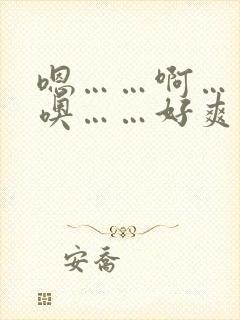 嗯……啊…
噢……好爽
安喬